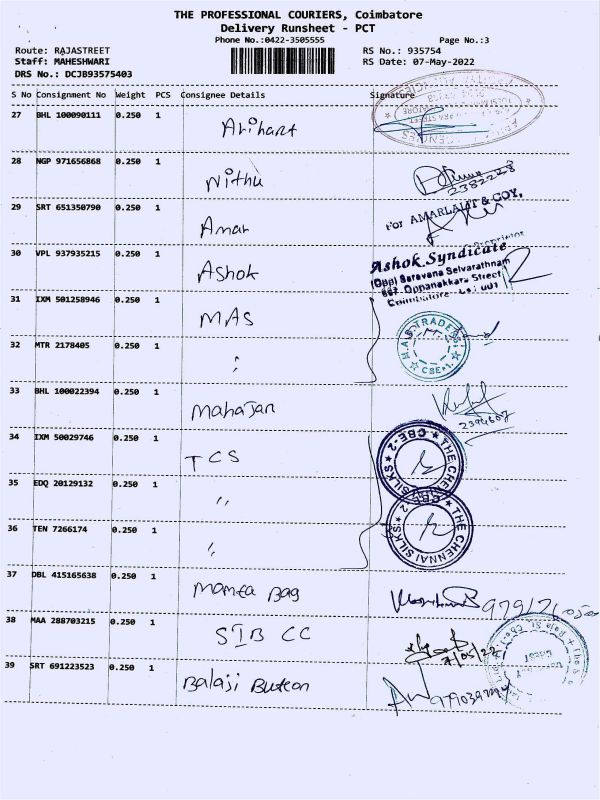 THE PROFESSIONAL COURIERS, Coimbatore
Delivery Runsheet - PCT
Phone No.:0422-3505555
Page No.:3
Route: RAJASTREET
RS No.: 935754
Staff: MAHESHWARI
RS Date: 07-May-2022
DRS No.: DCJB93575403
S No Consignment No Weight PCS Consignee Details Signature
27 BHL 100090111 0.250 1 Arihant
28 NGP 971656868 0.250 1 Nithu
2382228
29 SRT 651350790 0.250 1 Amar
For AMARLALIT & COY,
Proprietor
30 VPL 937935215 0.250 1 Ashok
Ashok Syndicate
(Opp) Saravana Selvarathnam
667, Oppanakkara Street
Coimbatore
31 IXM 501258946 0.250 1 MAS
M.A.S TRADERS
CBE-1
32 MTR 2178405 0.250 1 ;
33 BHL 100022394 0.250 1 Mahajan
2394607
34 IXM 50029746 0.250 1 TCS
THE CHENNAI SILKS CBE-2
35 EDQ 20129132 0.250 1 "
THE CHENNAI SILKS CBE-2
36 TEN 7266174 0.250 1 "
37 DBL 415165638 0.250 1 Mamta Bag
38 MAA 288703215 0.250 1 SIB CC
7/05/22
39 SRT 691223523 0.250 1 Balaji Button